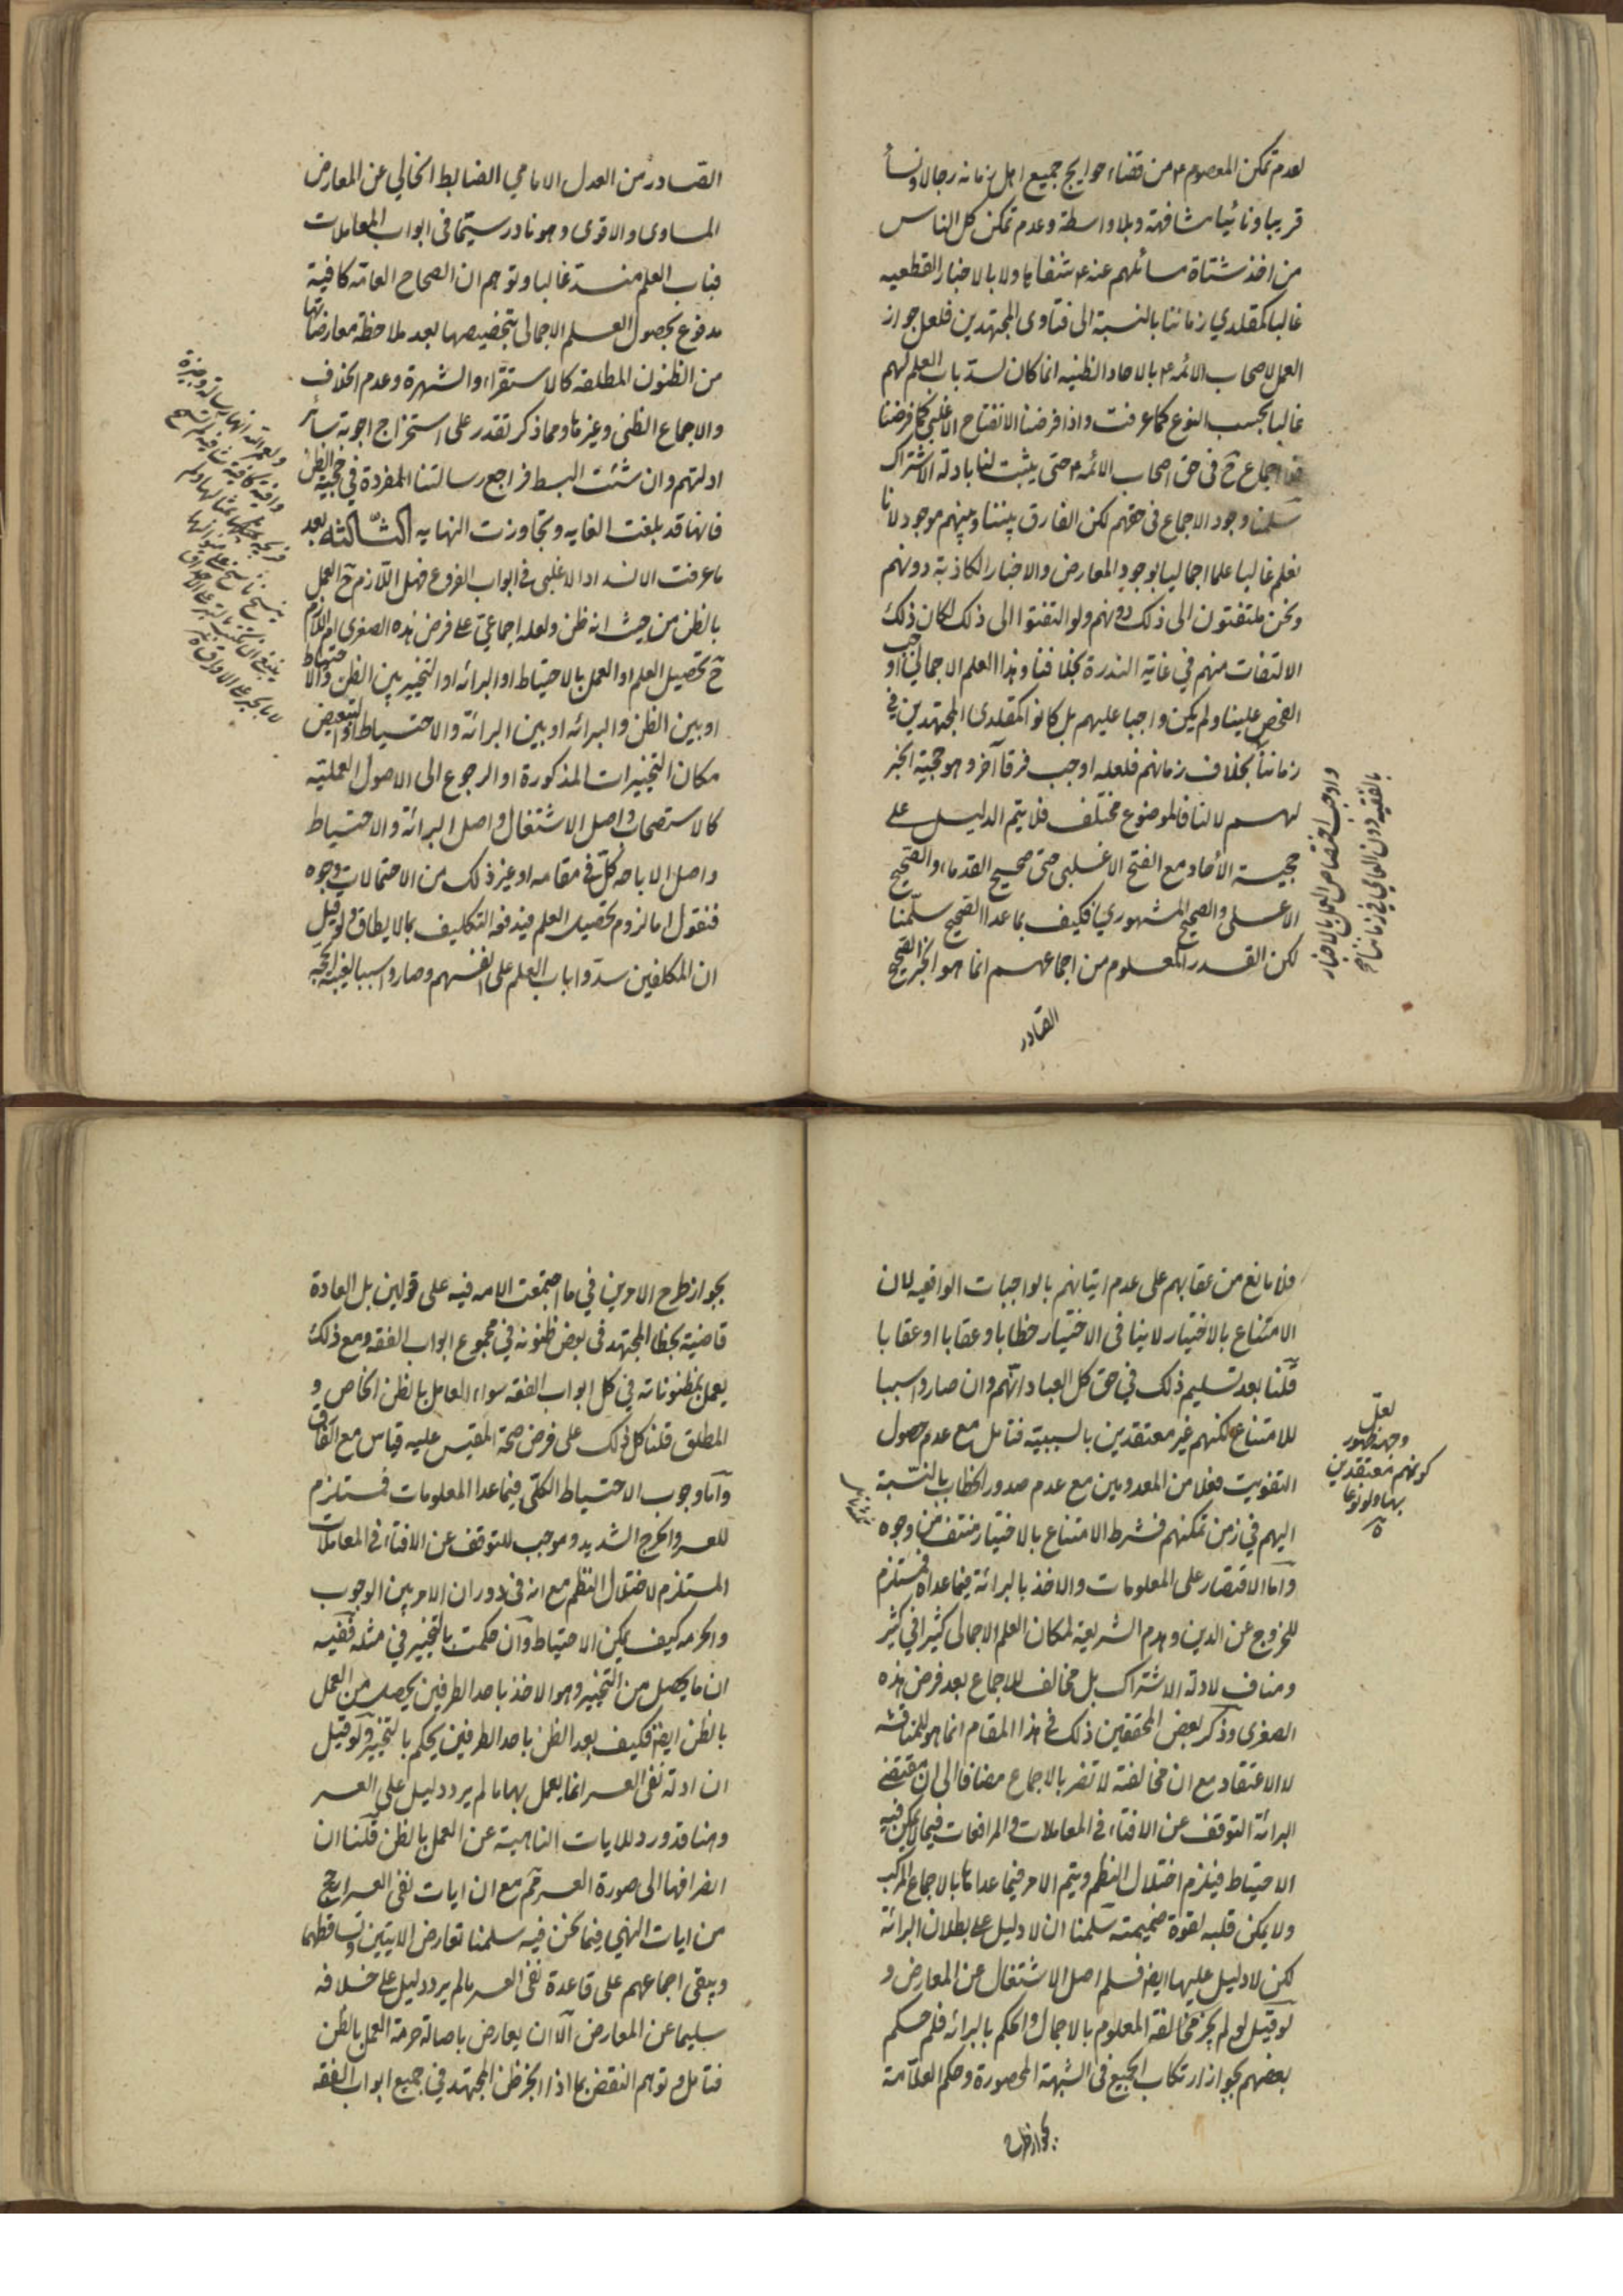 لعدم تمكن المعصوم ع من قضاء حوايج جميع اهل زمانه رجالا ونسأ
قريبا ونائيا مشافهة وبلا واسطة وعدم تمكن كل الناس
من اخذ شتاة مسائلهم عنه ع شفاها ولا بالاخبار القطعيه
غالبا كمقلدي زماننا بالنسبة الى فتاوى المجتهدين فلعل جواز
العمل لاصحاب الائمه ع بالاحاد الظنيه انما كان لسد باب العلم لهم
غالبا بحسب النوع كما عرفت واذا فرضنا الانفتاح الاغلبي كما فرضنا
فلا اجماع ح في حق اصحاب الائمه ع حتى يثبت لنا بادلة الاشتراك
سلمنا وجود الاجماع في حقهم لكن الفارق بيننا وبينهم موجود لانا
نعلم غالبا علما اجماليا بوجود المعارض والاخبار الكاذبة دونهم
ونحن ملتفتون الى ذلك دونهم ولو التفتوا الى ذلك لكان ذلك
الالتفات منهم في غاية الندرة بخلافنا وهذا العلم الاجمالي اوجب
الفحص علينا ولم يكن واجبا عليهم بل كانوا كمقلدى المجتهدين في
زماننا بخلاف زمانهم فلعله اوجب فرقا آخر وهو حجية الخبر
لهم لا لنا فالموضوع مختلف فلا يتم الدليل على
حجية الأحاد مع الفتح الاغلبى حتى صحيح القدماء والصحيح
الاعلى والصحيح المشهوري فكيف بما عدا الصحيح سلمنا
لكن القدر المعلوم من اجماعهم انما هو الخبر الصحيح
الصادر
واوجب اختصاص العمل بالاخبار
بالفقيه دون العامي في زماننا
الصادر من العدل الامامي الضابط الخالي عن المعارض
المساوى والاقوى وهو نادر سيما في ابواب المعاملات
فباب العلم منسد غالبا وتوهم ان الصحاح العامة كافية
مدفوع بحصول العلم الاجمالى بتخصيصها بعد ملاحظة معارضاتها
من الظنون المطلقه كالاستقراء والشهرة وعدم الخلاف
والاجماع الظنى وغيرها ومما ذكر تقدر على استخراج اجوبة سائر
ادلتهم وان شئت البسط فراجع رسالتنا المفردة في حجية الظن
فانها قد بلغت الغايه وتجاوزت النهايه الثالثه بعد
ما عرفت الانسداد الاغلبى في ابواب الفروع فهل اللازم ح العمل
بالظن من حيث انه ظن ولعله اجماعي على فرض هذه الصغرى ام اللازم
ح تحصيل العلم او العمل بالاحتياط او البرائه او التخيير بين الظن والاحتياط
او بين الظن والبرائه او بين البرائة والاحتياط او التبعيض
مكان التخييرات المذكورة او الرجوع الى الاصول العمليه
كالاستصحاب واصل الاشتغال واصل البرائة والاحتياط
واصل الاباحه كل في مقامه او غير ذلك من الاحتمالات وجوه
فنقول اما لزوم تحصيل العلم فيدفعه التكليف بما لا يطاق ولو قيل
ان المكلفين سدوا باب العلم على انفسهم وصاروا سببا لغيبة الحجه
فلا مانع من عقابهم على عدم اتيانهم بالواجبات الواقعيه لان
الامتناع بالاختيار لا ينافى الاختيار خطابا وعقابا او عقابا
قلنا بعد تسليم ذلك في حق كل العباد انهم وان صاروا سببا
للامتناع لكنهم غير معتقدين بالسببيه فتامل مع عدم حصول
التفويت فعلا من المعدومين مع عدم صدور الخطاب بالنسبة
اليهم في زمن تمكنهم فشرط الامتناع بالاختيار منتف من وجوه
واما الاقتصار على المعلومات والاخذ بالبرائة فيما عداه فمستلزم
للخروج عن الدين وهدم الشريعة لمكان العلم الاجمالى كثيرا في كثير
ومناف لادلة الاشتراك بل مخالف للاجماع بعد فرض هذه
الصغرى وذكر بعض المحققين ذلك في هذا المقام انما هو للمناقشه
لا الاعتقاد مع ان مخالفته لا تضر بالاجماع مضافا الى ان مقتضى
البرائة التوقف عن الافتاء في المعاملات والمرافعات فيما لا يمكن فيه
الاحتياط فيلزم اختلال النظم ويتم الامر فيما عداها بالاجماع المركب
ولا يمكن قلبه لقوة ضميمته سلمنا ان لا دليل على بطلان البرائة
لكن لا دليل عليها ايضا فسلم اصل الاشتغال عن المعارض و
لو قيل لو لم يجز مخالفة المعلوم بالاجمال والحكم بالبرائه فلم حكم
بعضهم بجواز ارتكاب الجميع في الشبهة المحصورة وحكم العلامة
بجواز طرح
لعل
وجهه ظهور
كونهم معتقدين
بها ولو نوعا
بجواز طرح الامرين في ما اجتمعت الامه فيه على قولين بل العادة
قاضية بخطا المجتهد في بعض ظنونه في مجموع ابواب الفقه ومع ذلك
يعمل بمظنوناته في كل ابواب الفقه سواء العامل بالظن الخاص و
المطلق قلنا كل ذلك على فرض صحة المقيس عليه قياس مع الفارق
واما وجوب الاحتياط الكلى فيما عدا المعلومات فمستلزم
للعسر والحرج الشديد وموجب للتوقف عن الافتاء في المعاملات
المستلزم لاختلال النظم مع انه في دوران الامر بين الوجوب
والحرمه كيف يمكن الاحتياط وان حكمت بالتخيير في مثله ففيه
ان ما يحصل من التخيير وهو الاخذ باحد الطرفين يحصل من العمل
بالظن ايضا فكيف بعد الظن باحد الطرفين يحكم بالتخيير ولو قيل
ان ادلة نفى العسر انما يعمل بها ما لم يرد دليل على العسر
وهنا قد ورد للايات الناهية عن العمل بالظن قلنا ان
انصرافها الى صورة العسر مم مع ان ايات نفى العسر ارجح
من ايات النهي فيما نحن فيه سلمنا تعارض الايتين وتساقطهما
ويبقى اجماعهم على قاعدة نفى العسر ما لم يرد دليل على خلافه
سليما عن المعارض الا ان يعارض باصالة حرمة العمل بالظن
فتامل وتوهم النقض بما اذا انجر ظن المجتهد في جميع ابواب الفقه